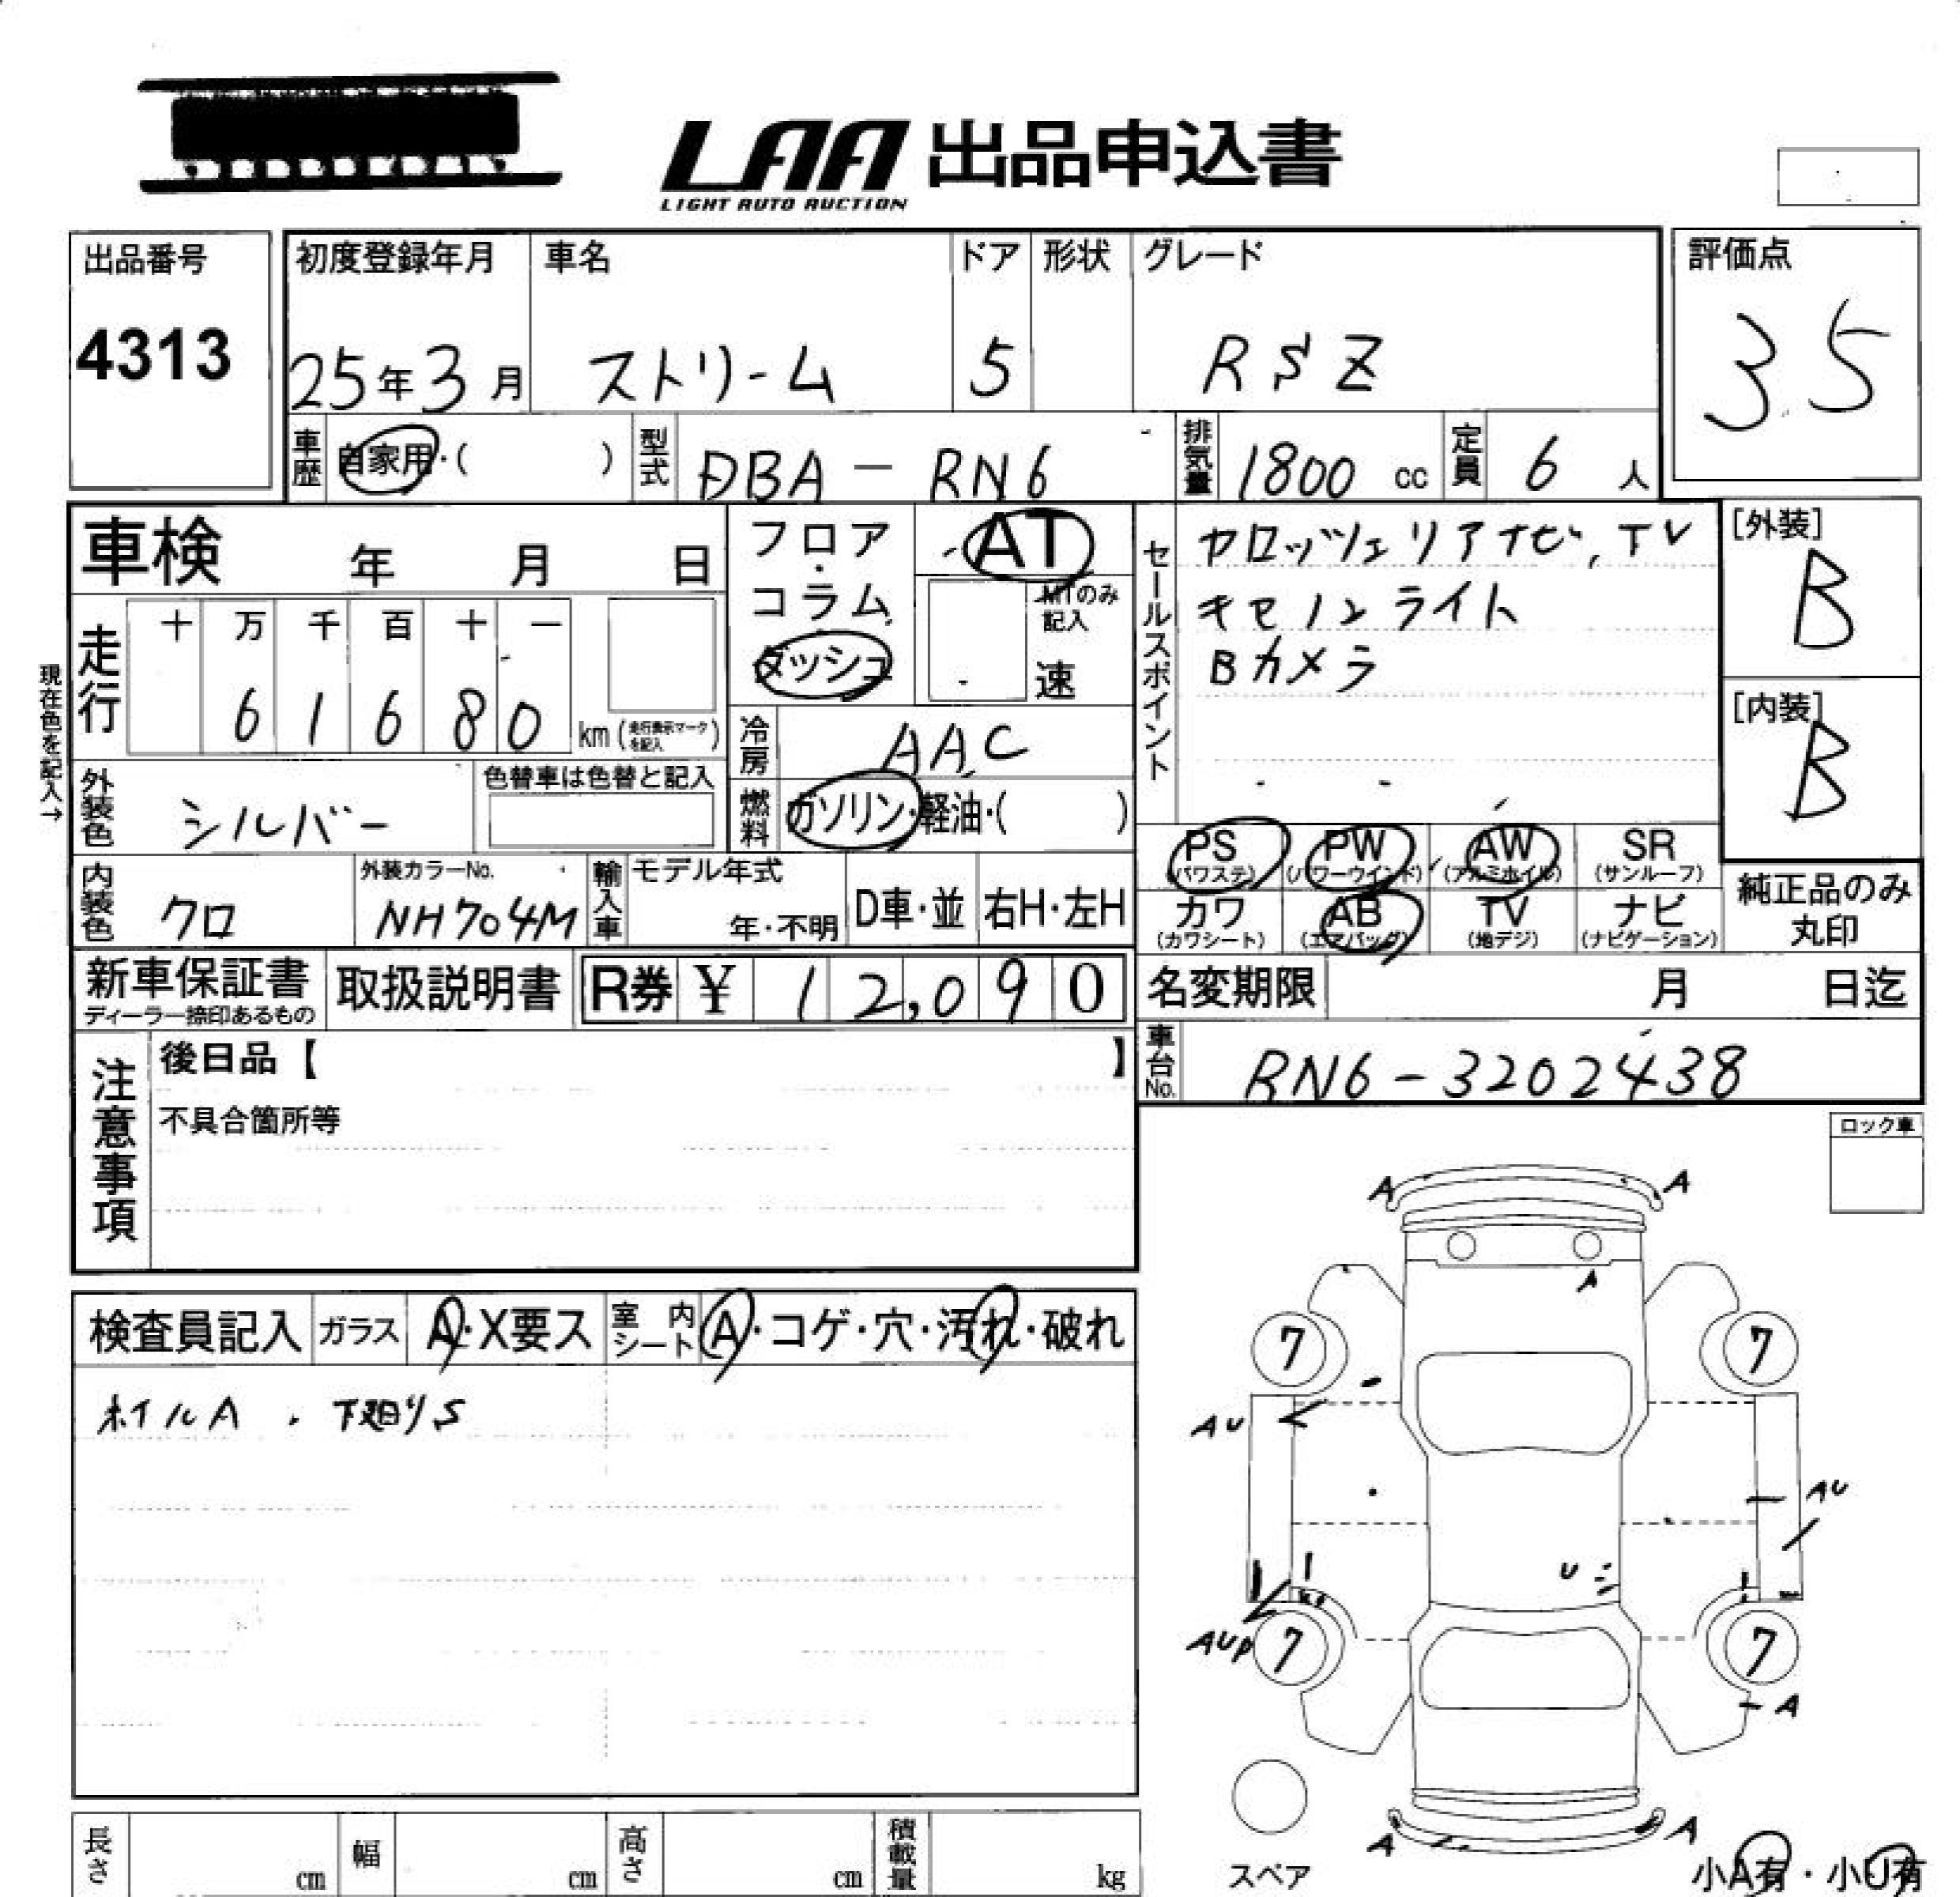 LAA 出品申込書
LIGHT AUTO AUCTION
出品番号
4313
初度登録年月
25年3月
車名
ストリーム
ドア
5
形状
グレード
RSZ
評価点
3.5
車歴
自家用・( )
型式
DBA-RN6
排気量
1800 cc
定員
6 人
車検 年 月 日
フロア・コラム
ダッシュ
AT
MTのみ記入
速
セールスポイント
カロッツェリアナビ,TV
キセノンライト
Bカメラ
[外装]
B
[内装]
B
現在色を記入→
走行
十 万 千 百 十 一
6 1 6 8 0
km(走行表示マークを記入)
冷房
AAC
燃料
ガソリン・軽油・( )
外装色
シルバー
色替車は色替と記入
内装色
クロ
外装カラーNo.
NH704M
輸入車
モデル年式
年・不明
D車・並
右H・左H
PS
(パワステ)
PW
(パワーウインド)
AW
(アルミホイル)
SR
(サンルーフ)
カワ
(カワシート)
AB
(エアバッグ)
TV
(地デジ)
ナビ
(ナビゲーション)
純正品のみ
丸印
新車保証書
ディーラー捺印あるもの
取扱説明書
R券 ¥ 12,090
名変期限 月 日迄
車台No.
RN6-3202438
注意事項
後日品【 】
不具合箇所等
ロック車
検査員記入
ガラス
A・X要ス
室内シート
A・コゲ・穴・汚れ・破れ
ホイルA . 下廻りS
A A
A
7 7
AU
AU
U
AUP
7 7
A
A A
スペア
小A有・小U有
長さ cm
幅 cm
高さ cm
積載量 kg